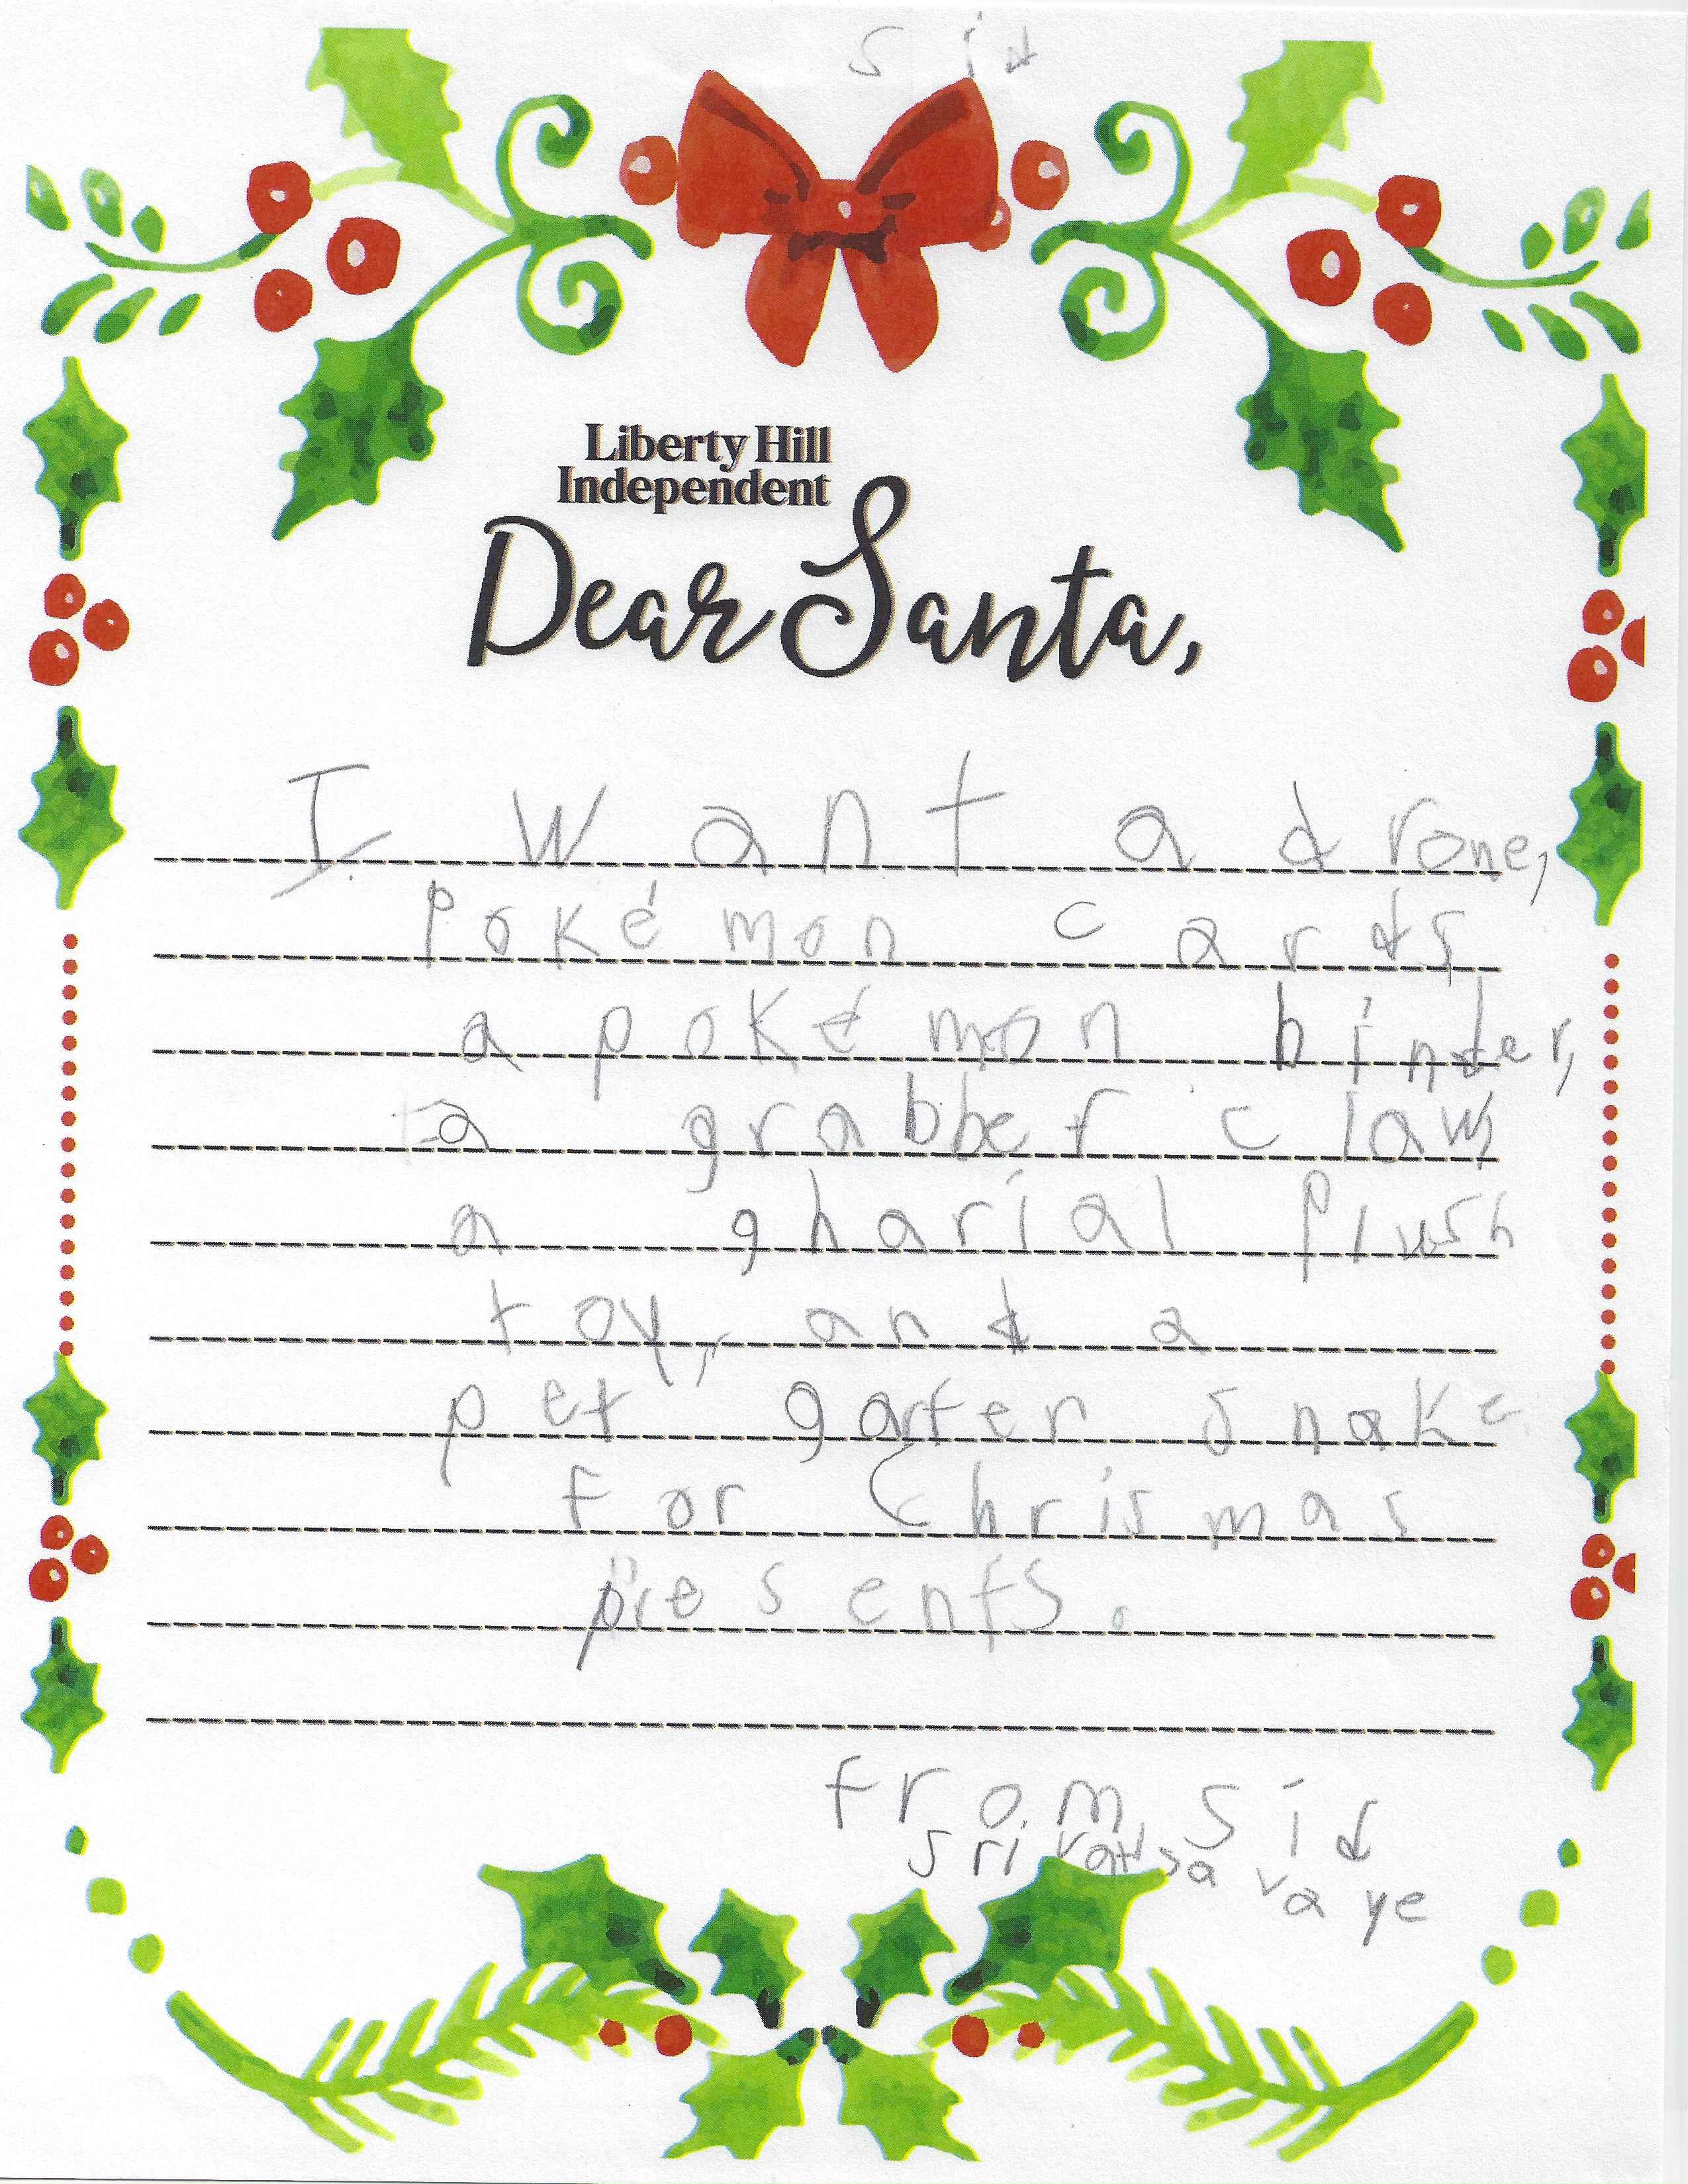 sid
Liberty Hill
Independent
Dear Santa,
I want a drone,
pokémon cards
a pokémon binder,
a grabber claw,
a gharial plush
toy, and a
pet garter snake
for Chrismas
presents.
from sid
sri vatsa vaye